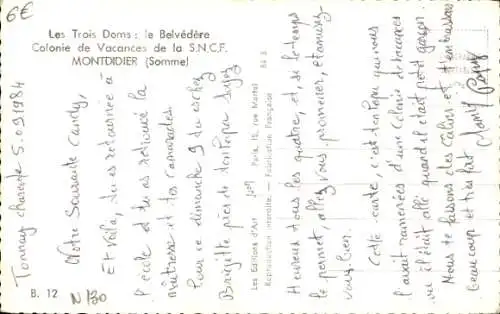 6€
Les Trois Doms : le Belvédère
Colonie de Vacances de la S.N.C.F.
MONTDIDIER (Somme)
Tonnay charente 5.09.1984
Notre Souraude Candy,
Et voilà, tu es retournée à
l'école et tu as retrouvé la
maîtresse et tes camarades.
Pour ce dimanche 9 du
Brigitte près de ton Papa
Heureux tous les quatre, et, si le temps
le permet, allez vous promener,
vous bien.
Cette carte, c'est ton Papa qui nous
l'avait ramenée d'une Colonie de vacances
où il était allé quand il était petit garçon
Nous te faisons des calins et t'embrassons
beaucoup et très fort
Mamy Papy
Les Editions d'Art
Paris, 15, rue Martel
Reproduction interdite. — Fabrication Française
B. 12
N/30